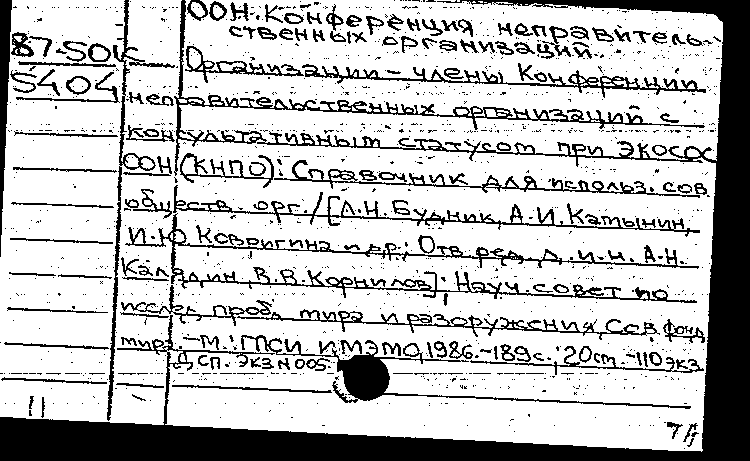 ООН. Конференция неправитель-
ственных организаций.
87-50К
5404
Организации – члены Конференции
неправительственных организаций с
консультативным статусом при ЭКОСОС
ООН (КНПО): Справочник для использ. сов
обществ. орг. / [Л.Н. Будник, А.И. Катынин,
И.Ю. Ковригина и др.; Отв. ред. д.и.н. А.Н.
Каледин, В.В. Корнилов]; Науч. совет по
исслед. пробл. мира и разоружения, Сов. фонд
мира. – М.: ИМЭМО, 1986. – 189 с.; 20 см. – 110 экз
Дсп. экз N 005.
11